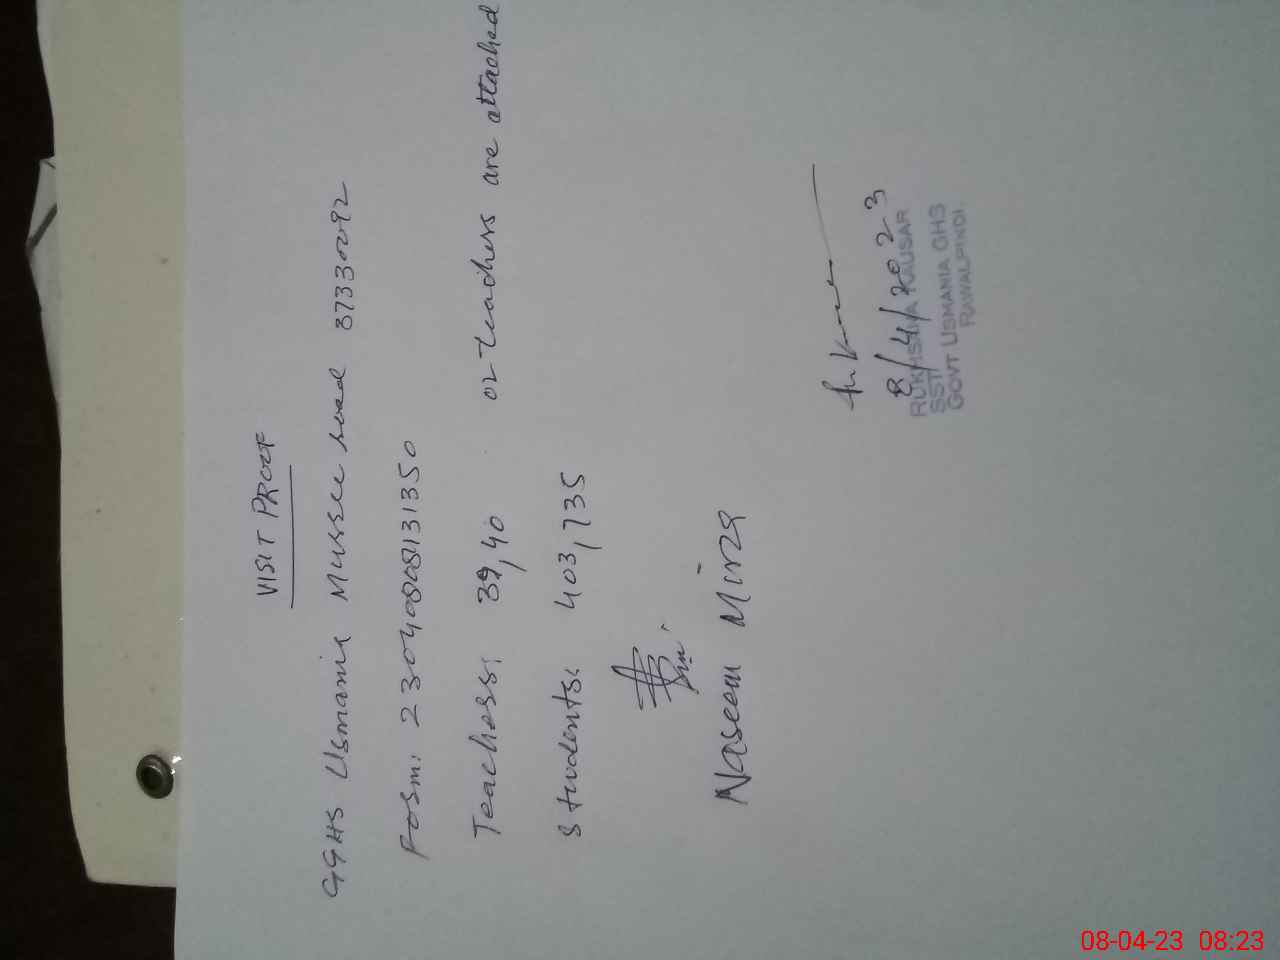 VISIT PROOF
GGHS Usmania Murree road 37330292
Form: 23040808131350
Teachers: 39,40 02 teachers are attached
Students: 403,735
Naseem Mirza
8/4/2023
RUKHSANA KAUSAR
SST
GOVT USMANIA GHS
RAWALPINDI.
08-04-23 08:23